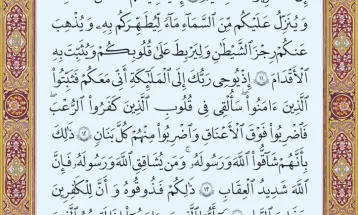 وَيُنَزِّلُ عَلَيْكُم مِّنَ ٱلسَّمَآءِ مَآءً لِّيُطَهِّرَكُم بِهِۦ وَيُذْهِبَ
عَنكُمْ رِجْزَ ٱلشَّيْطَٰنِ وَلِيَرْبِطَ عَلَىٰ قُلُوبِكُمْ وَيُثَبِّتَ بِهِ
ٱلْأَقْدَامَ ١١ إِذْ يُوحِى رَبُّكَ إِلَى ٱلْمَلَٰٓئِكَةِ أَنِّى مَعَكُمْ فَثَبِّتُوا۟
ٱلَّذِينَ ءَامَنُوا۟ سَأُلْقِى فِى قُلُوبِ ٱلَّذِينَ كَفَرُوا۟ ٱلرُّعْبَ
فَٱضْرِبُوا۟ فَوْقَ ٱلْأَعْنَاقِ وَٱضْرِبُوا۟ مِنْهُمْ كُلَّ بَنَانٍ ١٢ ذَٰلِكَ
بِأَنَّهُمْ شَآقُّوا۟ ٱللَّهَ وَرَسُولَهُۥ وَمَن يُشَاقِقِ ٱللَّهَ وَرَسُولَهُۥ فَإِنَّ
ٱللَّهَ شَدِيدُ ٱلْعِقَابِ ١٣ ذَٰلِكُمْ فَذُوقُوهُ وَأَنَّ لِلْكَٰفِرِينَ